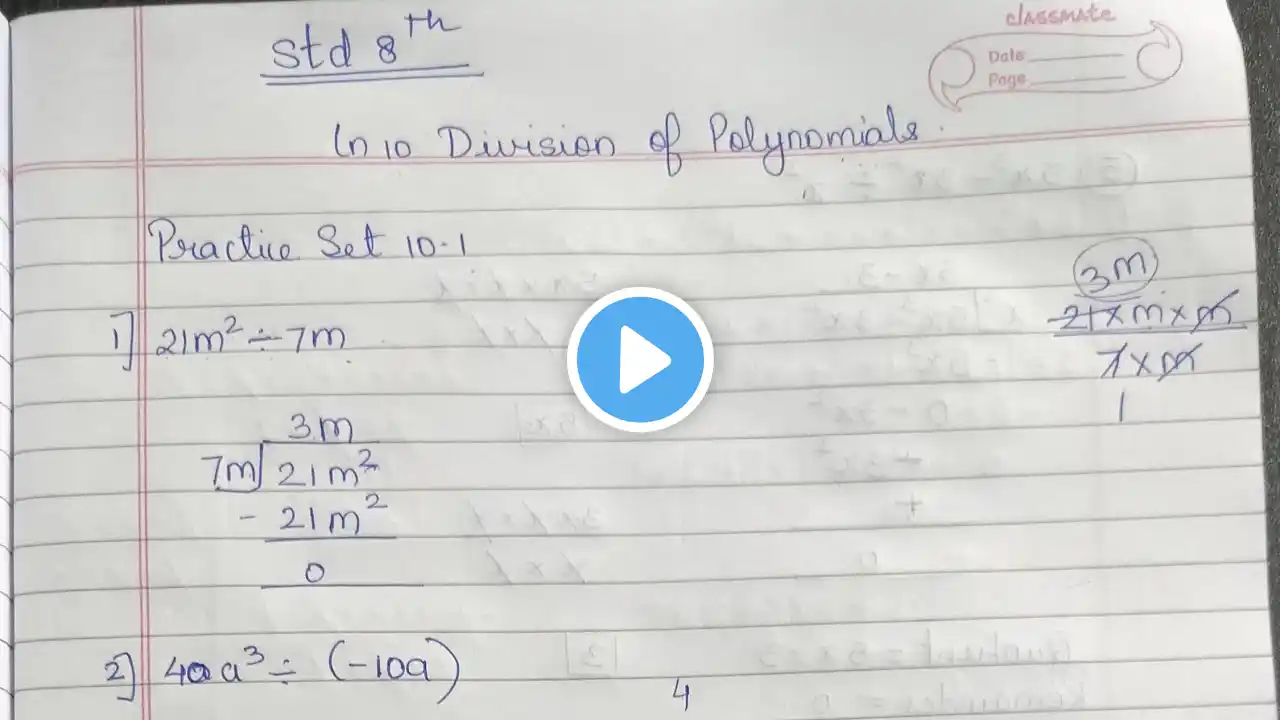 Std 8th
classmate
Date
Page
Ln 10 Division of Polynomials.
Practice Set 10.1
1] 21m² ÷ 7m
3m
21×m×m
7×m
1
3m
7m 21m²
- 21m²
0
2] 40a³ ÷ (-10a)
4